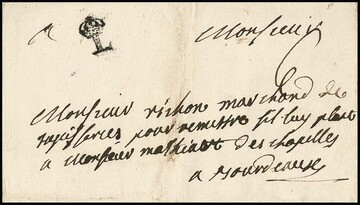 A
Monsieur
Monsieur richon marchand de
tapisseries pour remettre sil luy plait
a Monsieur mathieu des chapelles
a Bourdeaux